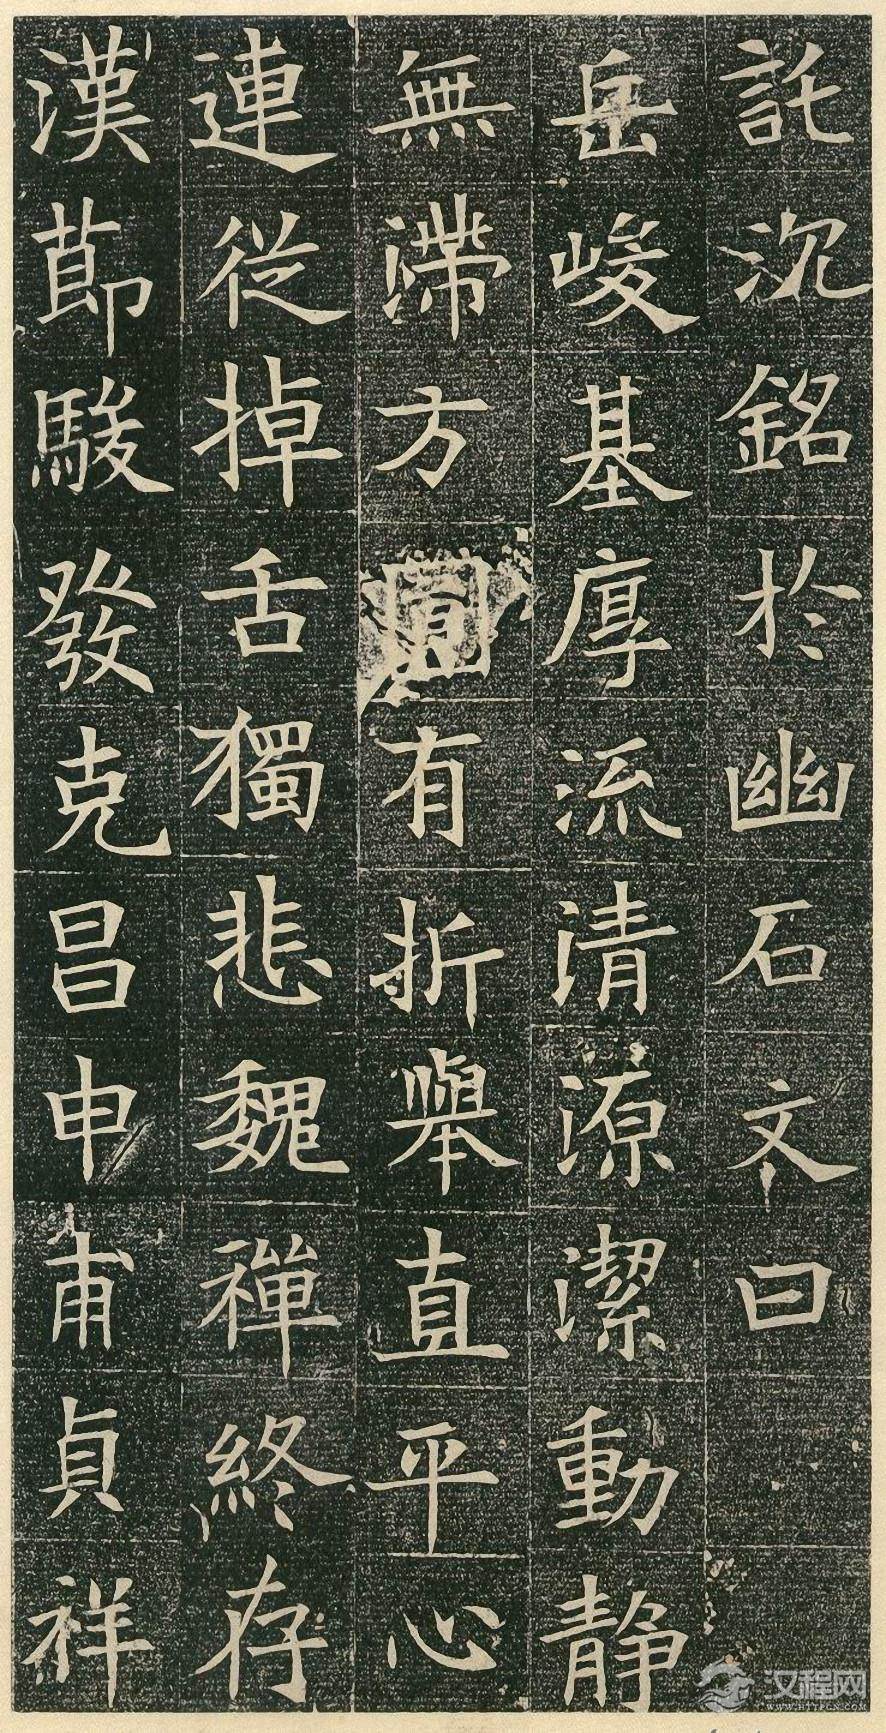 託沉銘於幽石文曰
岳峻基厚流清源潔動静
無滯方圓有折舉直平心
連從掉舌獨悲魏禪終存
漢節駿發克昌申甫貞祥
汉程网
WWW.HTTPCN.COM